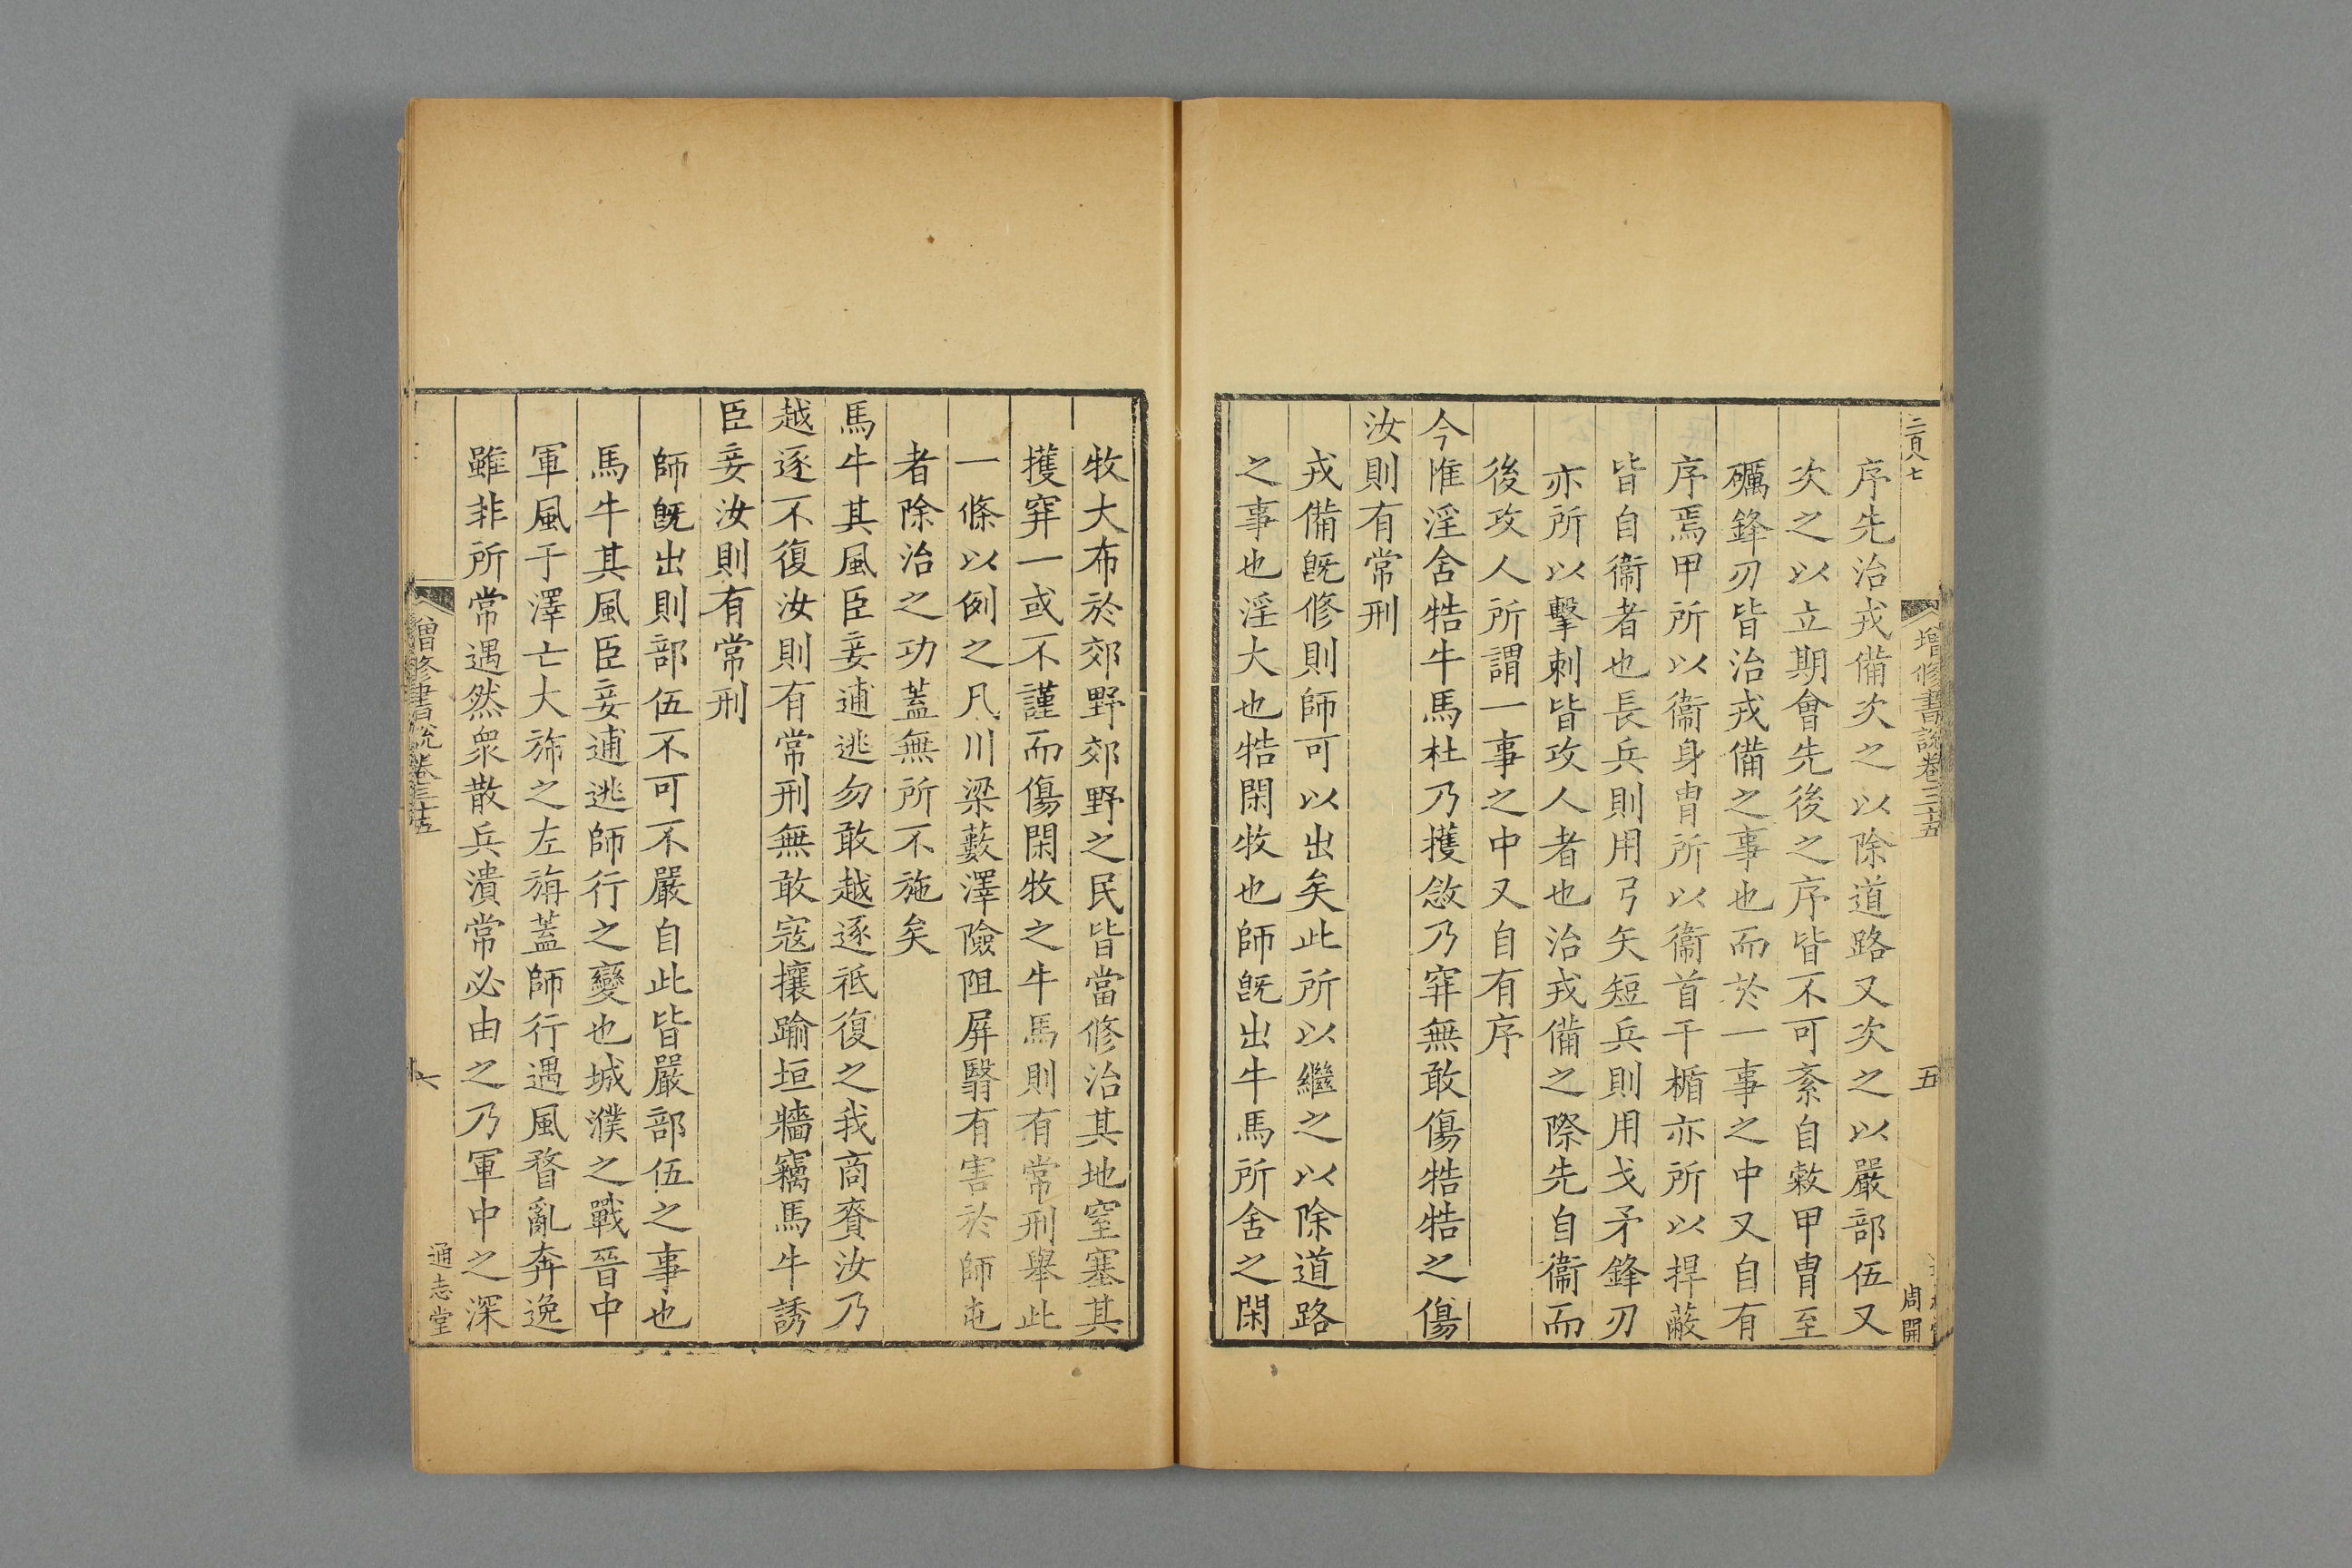 二百八七
增修書說卷三十五
五
周開
序先治戎備次之以除道路又次之以嚴部伍又
次之以立期會先後之序皆不可紊自敹甲冑至
礪鋒刃皆治戎備之事也而於一事之中又自有
序焉甲所以衞身冑所以衞首干楯亦所以捍蔽
皆自衞者也長兵則用弓矢短兵則用戈矛鋒刃
亦所以擊刺皆攻人者也治戎備之際先自衞而
後攻人所謂一事之中又自有序
今惟淫舍牿牛馬杜乃擭敜乃穽無敢傷牿牿之傷
汝則有常刑
戎備旣修則師可以出矣此所以繼之以除道路
之事也淫大也牿閑牧也師旣出牛馬所舍之閑
牧大布於郊野郊野之民皆當修治其地窒塞其
擭穽一或不謹而傷閑牧之牛馬則有常刑舉此
一條以例之凡川梁藪澤險阻屏翳有害於師屯
者除治之功蓋無所不施矣
馬牛其風臣妾逋逃勿敢越逐祗復之我商賚汝乃
越逐不復汝則有常刑無敢寇攘踰垣牆竊馬牛誘
臣妾汝則有常刑
師旣出則部伍不可不嚴自此皆嚴部伍之事也
馬牛其風臣妾逋逃師行之變也城濮之戰晉中
軍風于澤亡大旆之左旃蓋師行遇風瞀亂奔逸
雖非所常遇然衆散兵潰常必由之乃軍中之深
增修書說卷三十五
六
通志堂